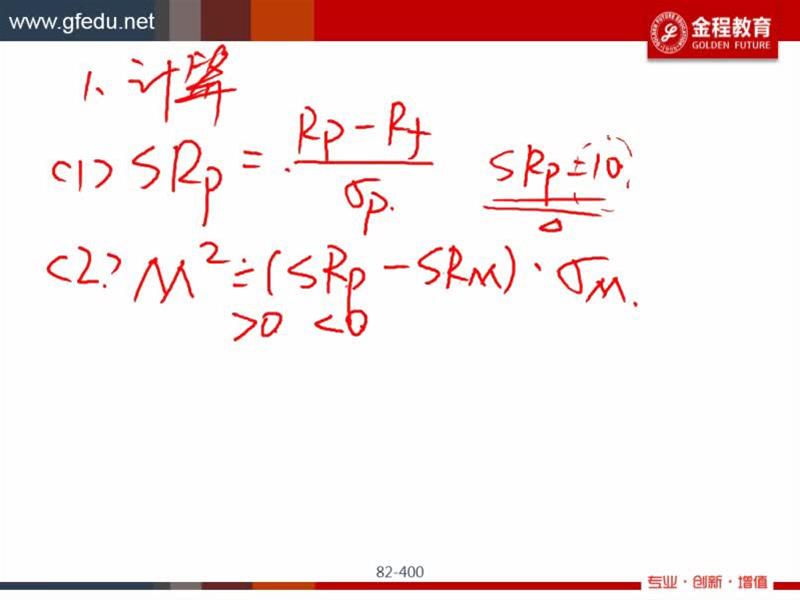 www.gfedu.net
金程教育
GOLDEN FUTURE
1、计算
(1) SRp = (Rp - Rf) / σp.
SRp = 10
(2) M² = (SRp - SRM) · σM.
>0 <0
82-400
专业·创新·增值